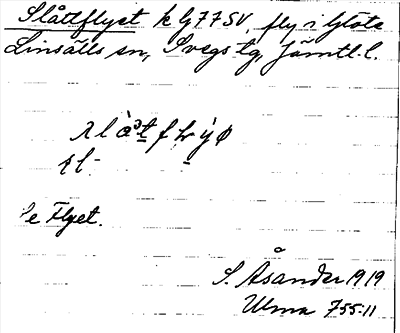 Slåttflyet k G77SV, fly i Glöte
Linsälls sn, Svegs tg, Jämtl. l.
Se Flyet.
S. Åsander 1919
Ulma 755:11